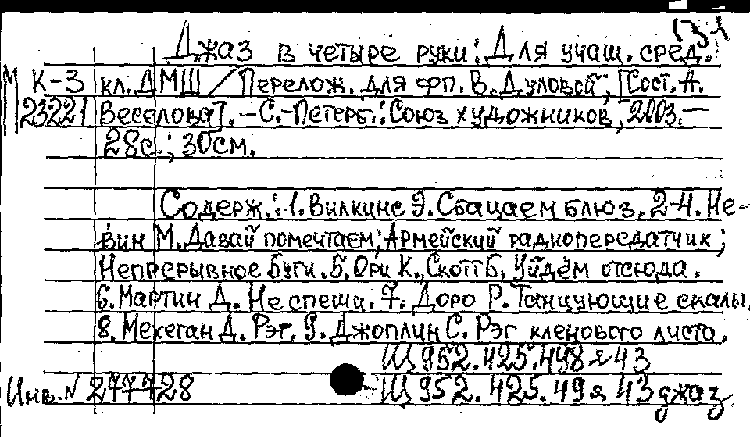 Джаз в четыре руки: Для учащ. сред.
М К-3 кл. ДМШ / Перелож. для фп. В. Дуловой; [Сост. А.
23221 Веселова]. – С.-Петерб.: Союз художников, 2003. –
28с.; 30см.
Содерж.: 1. Вилкинс Э. Сбацаем блюз. 2-4. Не-
вин М. Давай помечтаем; Армейский радиопередатчик;
Непрерывное буги. 5. Ори К., Скотт Б. Уйдём отсюда.
6. Мартин Д. Не спеши. 7. Доро Р. Танцующие скалы.
8. Мехеган Д. Рэг. 9. Джоплин С. Рэг кленового листа.
Щ 952.425.498я43
Инв. № 277428 Щ 952.425.49я 43 джаз